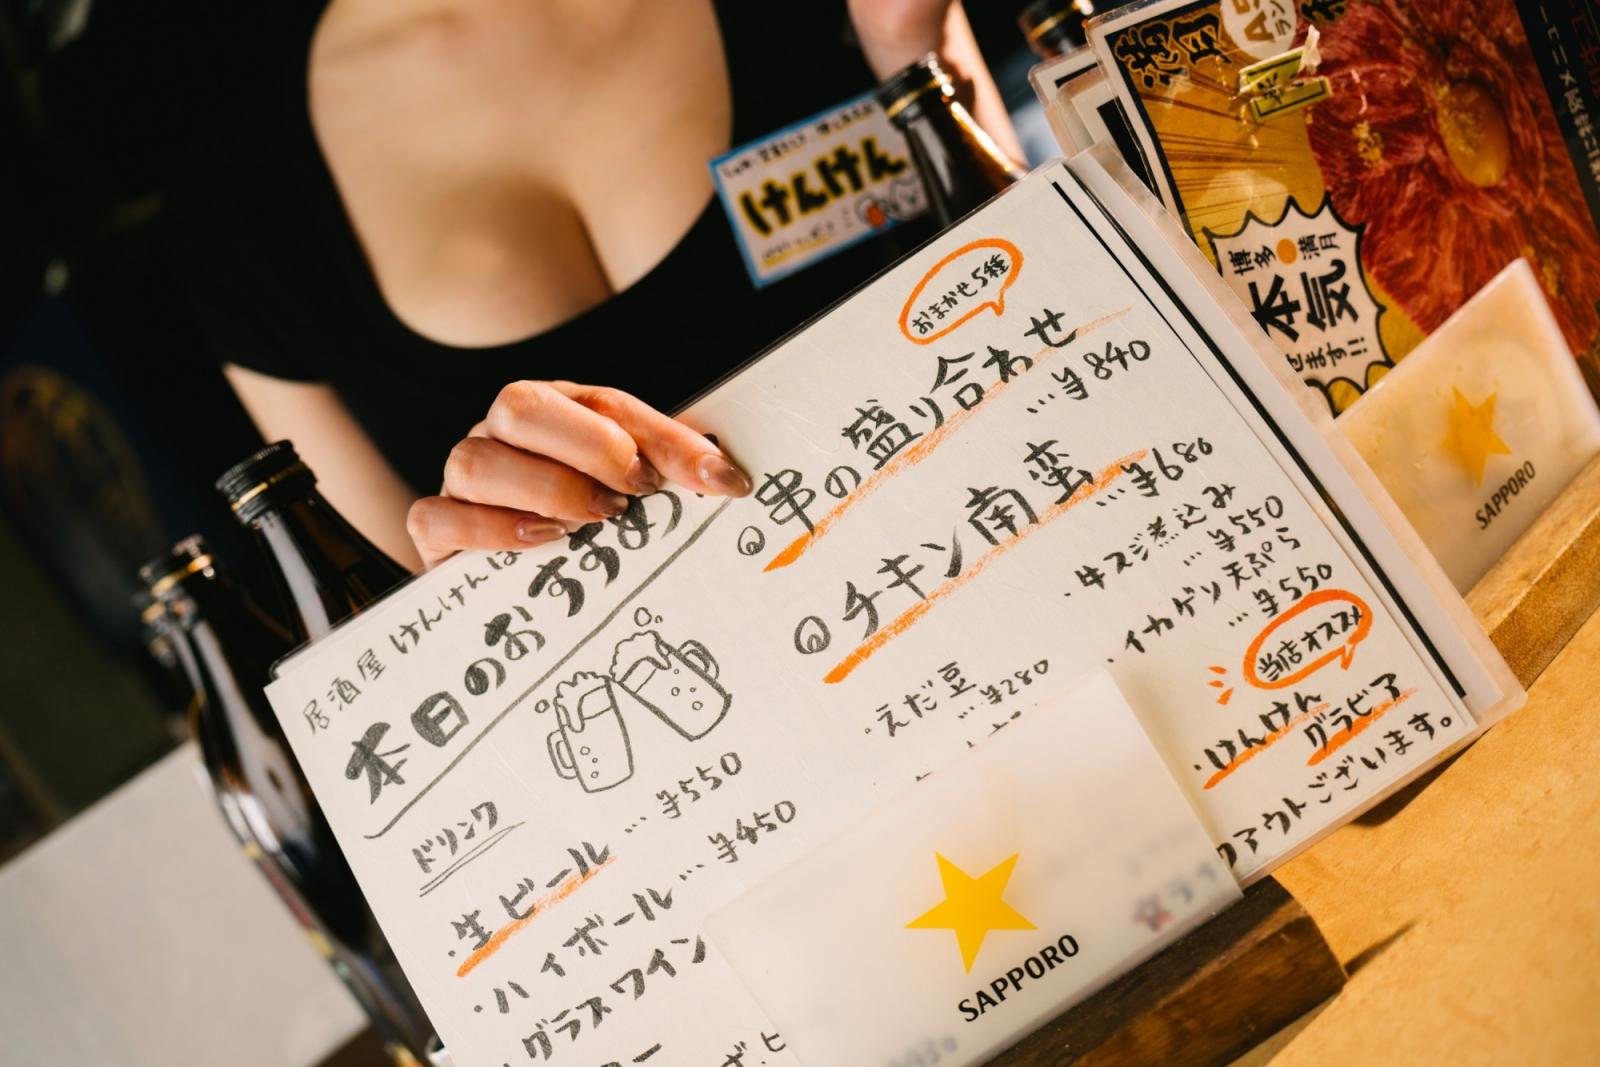 居酒屋 けんけんは
本日のおすすめ
ドリンク
・生ビール … ¥550
・ハイボール … ¥450
・グラスワイン
おまかせ5種
◎串の盛り合わせ
… ¥840
◎チキン南蛮
… ¥680
・えだ豆
… ¥280
・牛スジ煮込み
… ¥550
・イカゲソ天ぷら
… ¥550
当店オススメ
・けんけん
グラビア
アウトございます。
SAPPORO
けんけん
満月
博多●満月
本気
せます!!
SAPPORO